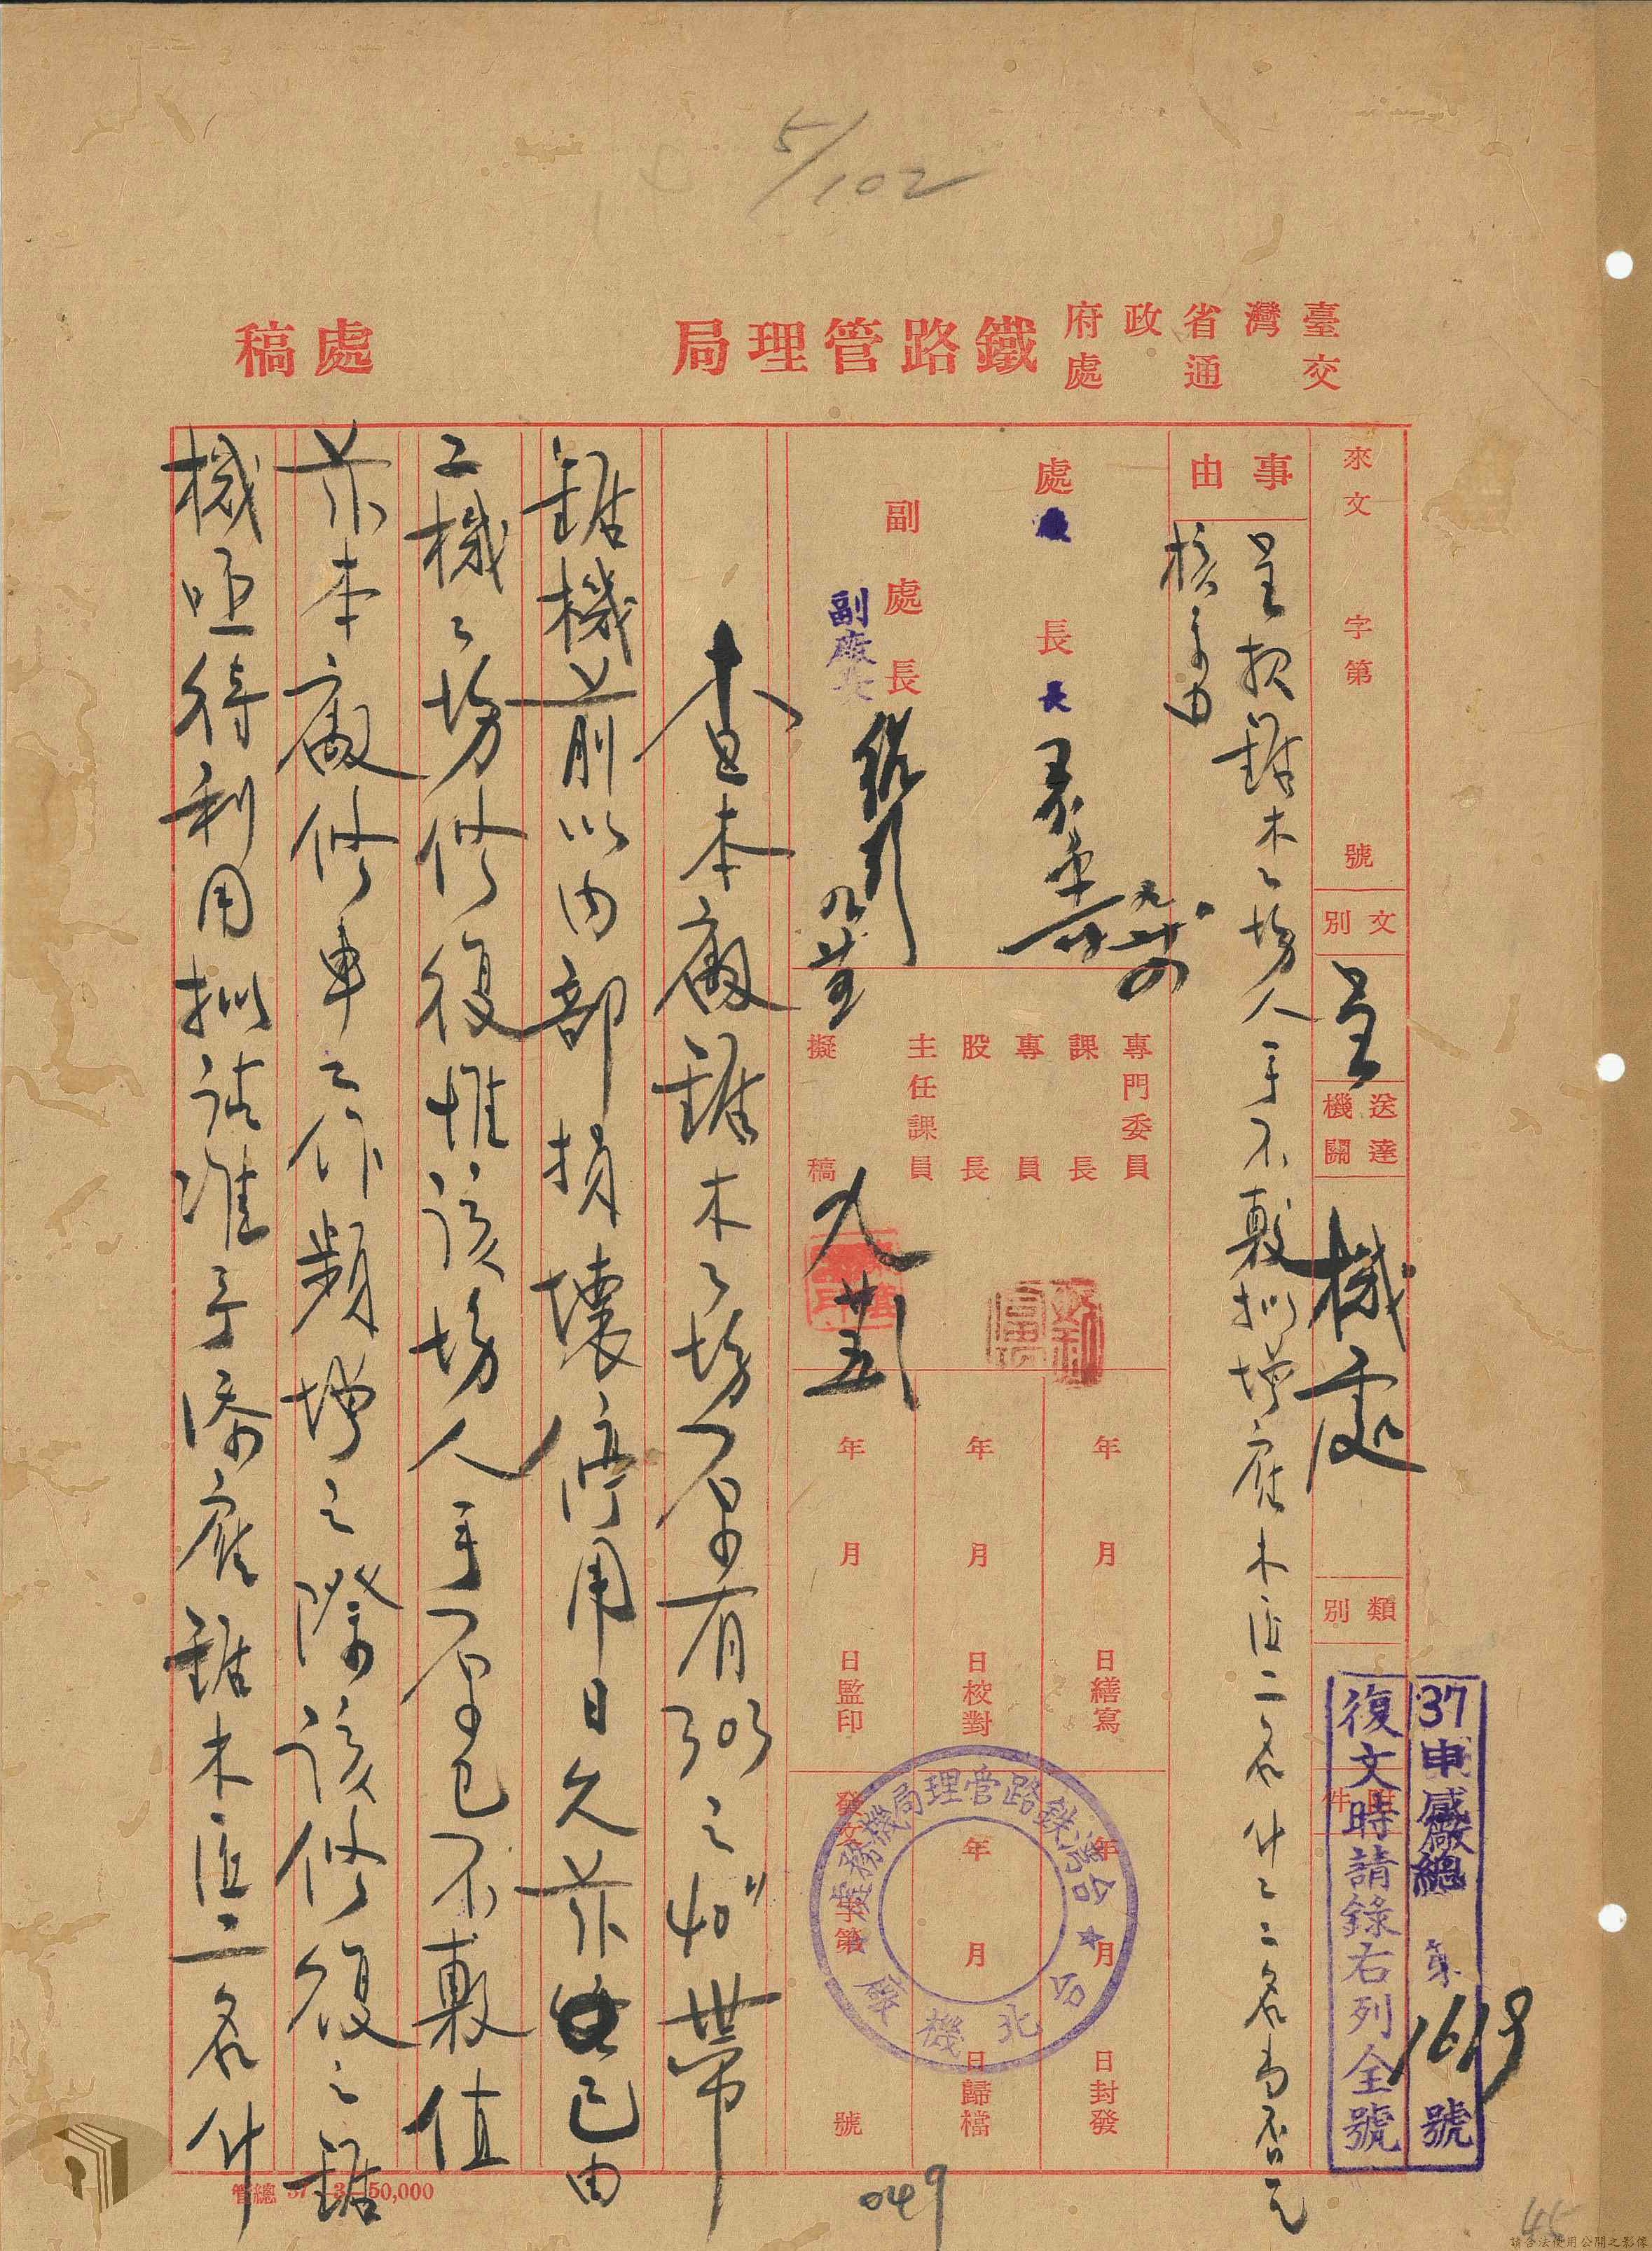 5/102
臺灣省政府
交通處
鐵路管理局
處稿
來文 字第 號
文別
呈
送達機關
機處
類別
附件
37申感廠總 第1619號
復文時請錄右列全號
事由
呈報鋸木工場人手不敷擬增雇木匠二名什工二名當否乞
核示由
處長
廠長
副處長
副廠長
專門委員
課長
專員
股長
主任課員
擬稿
九 廿五
年 月 日繕寫
年 月 日校對
年 月 日監印
年 月 日封發
年 月 日歸檔
發文 字第 號
台灣鉄路管理局機務處
台北機廠
查本廠鋸木工場原有303之40"帶
鋸機前以內部損壞停用日久茲已由
工機工場修復惟該場人手原已不敷值
茲本廠修車工作頻增之際該修復之鋸
機亟待利用擬請准予添雇鋸木匠二名什
管總 37—3—50,000
049
45
請合法使用公開之影像